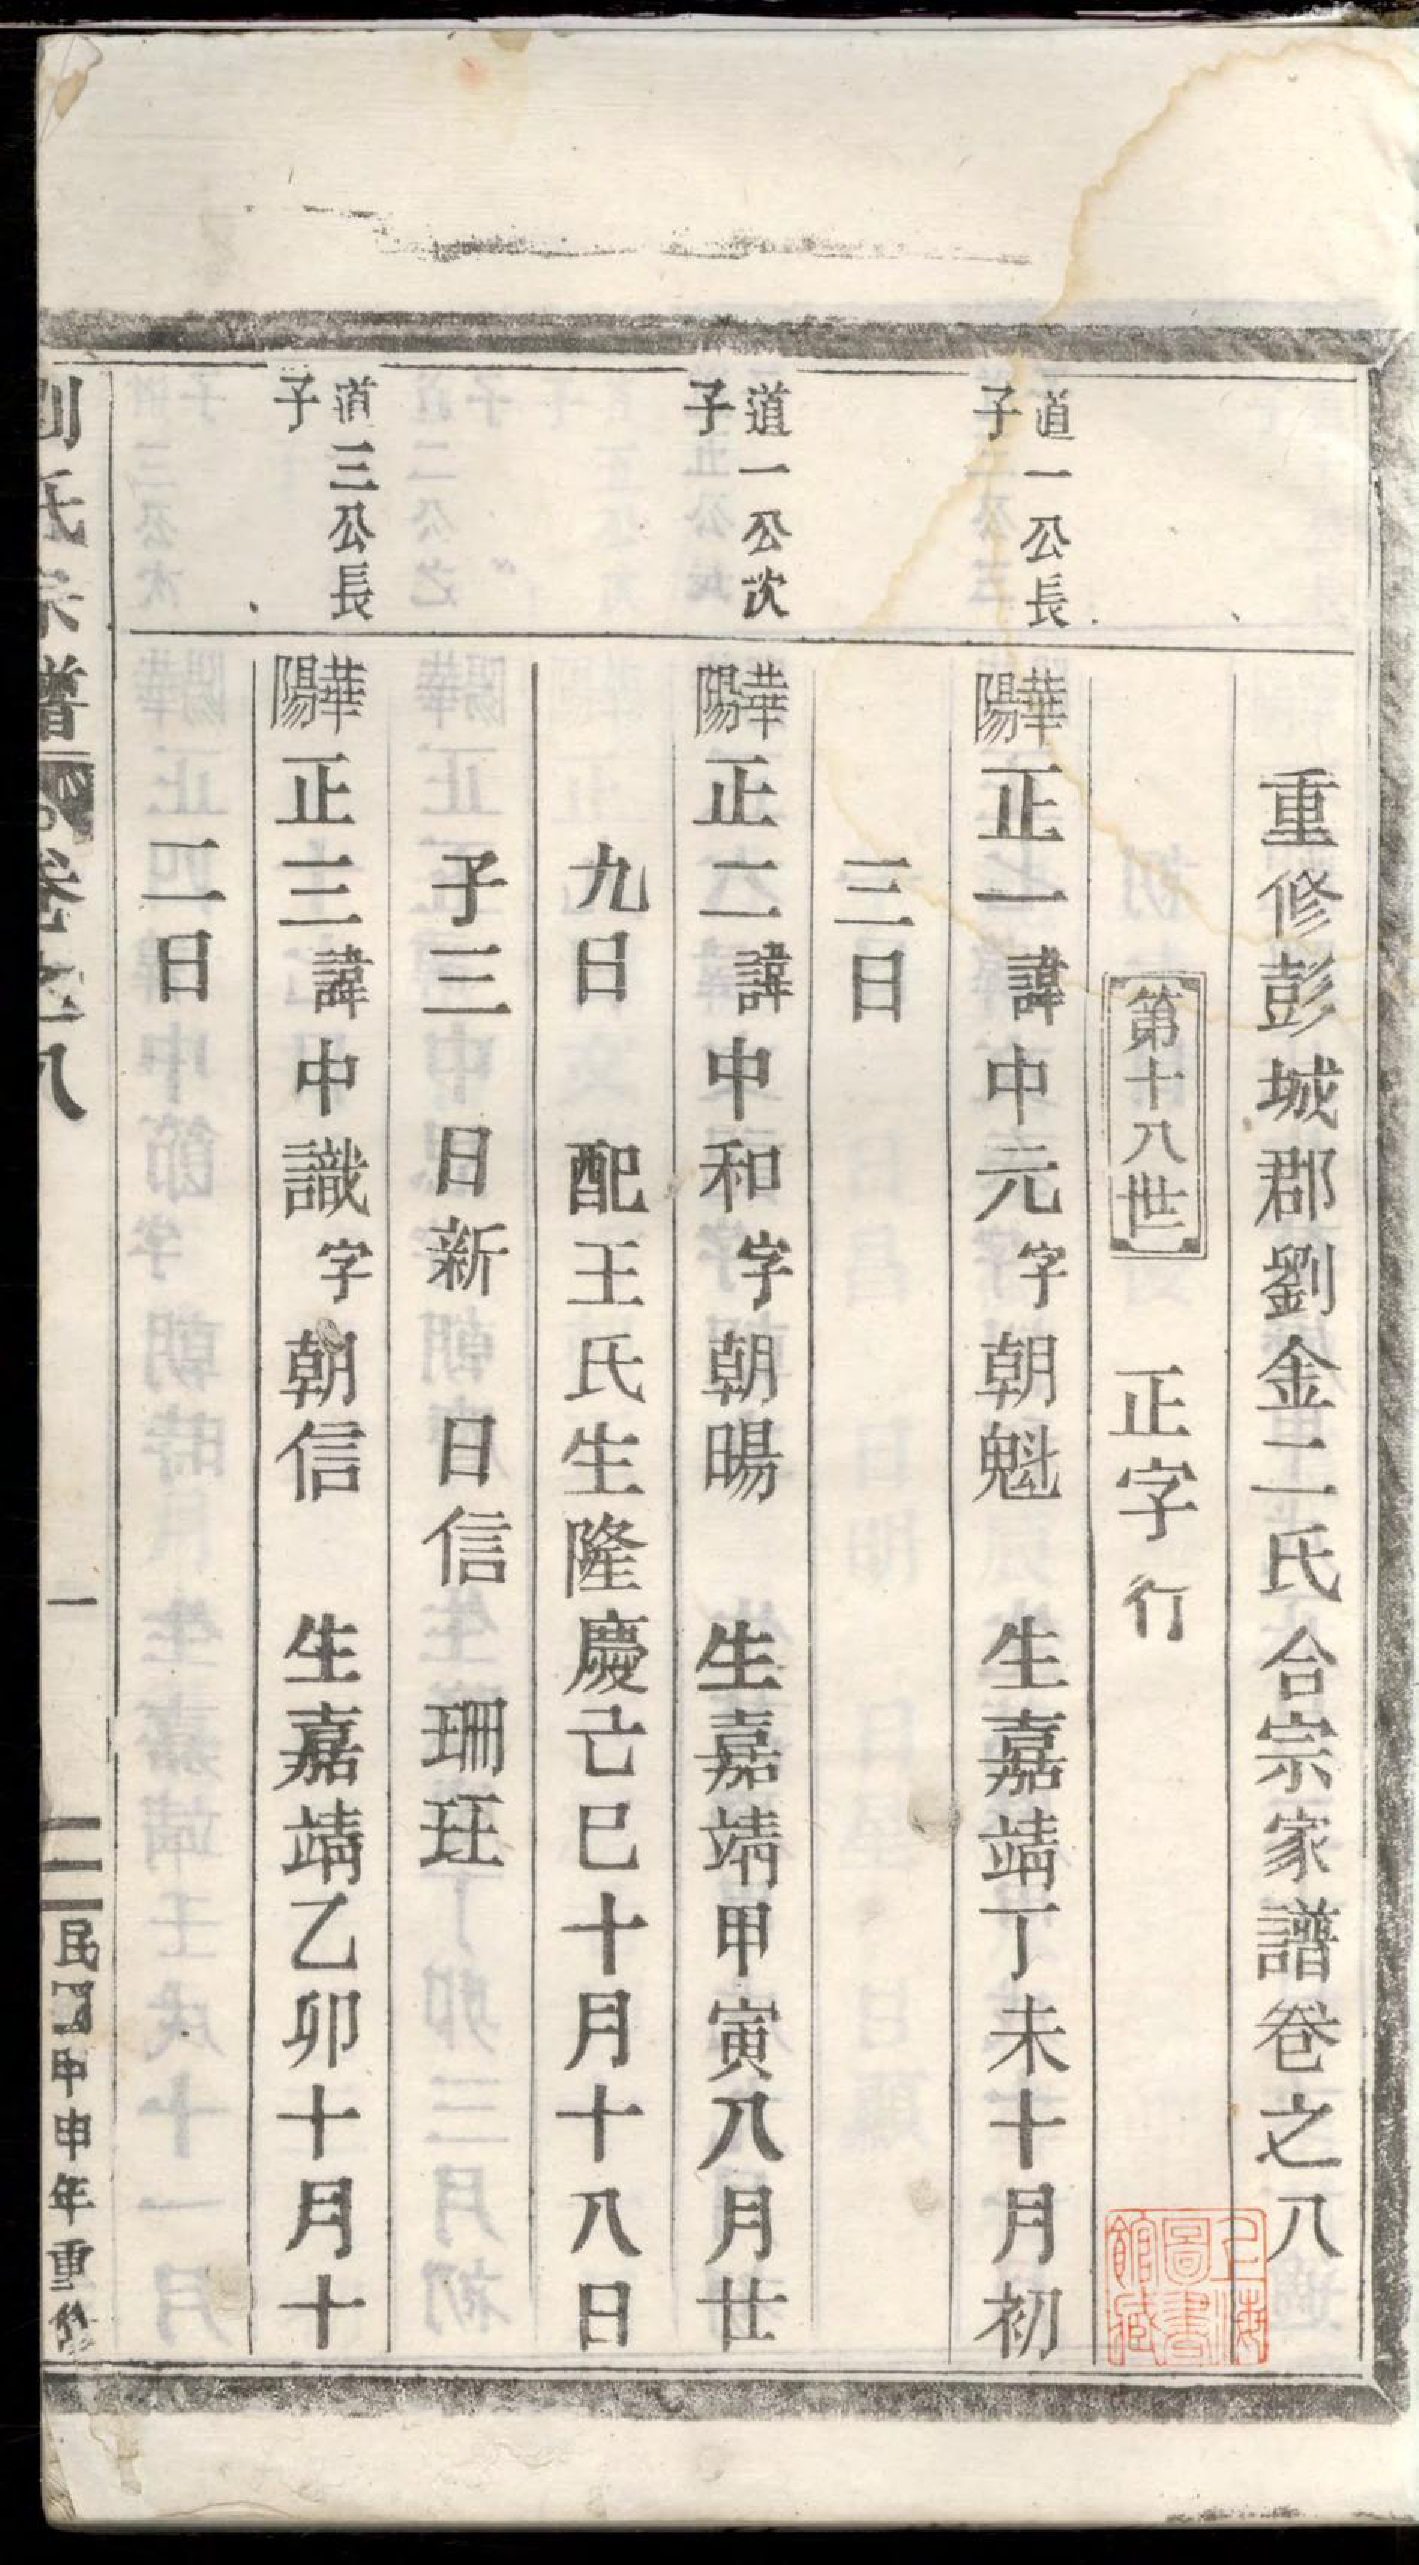 重修彭城郡劉金二氏合宗家譜卷之八
第十八世 正字行
道一公長子
華陽正一諱中元字朝魁 生嘉靖丁未十月初
三日
道一公次子
華陽正二諱中和字朝暘 生嘉靖甲寅八月廿
九日 配王氏生隆慶己巳十月十八日
子三 日新 日信 珊玨
道三公長子
華陽正三諱中識字朝信 生嘉靖乙卯十月十
二日
劉氏宗譜 卷之八 一 民國甲申年重修
上海圖書館藏